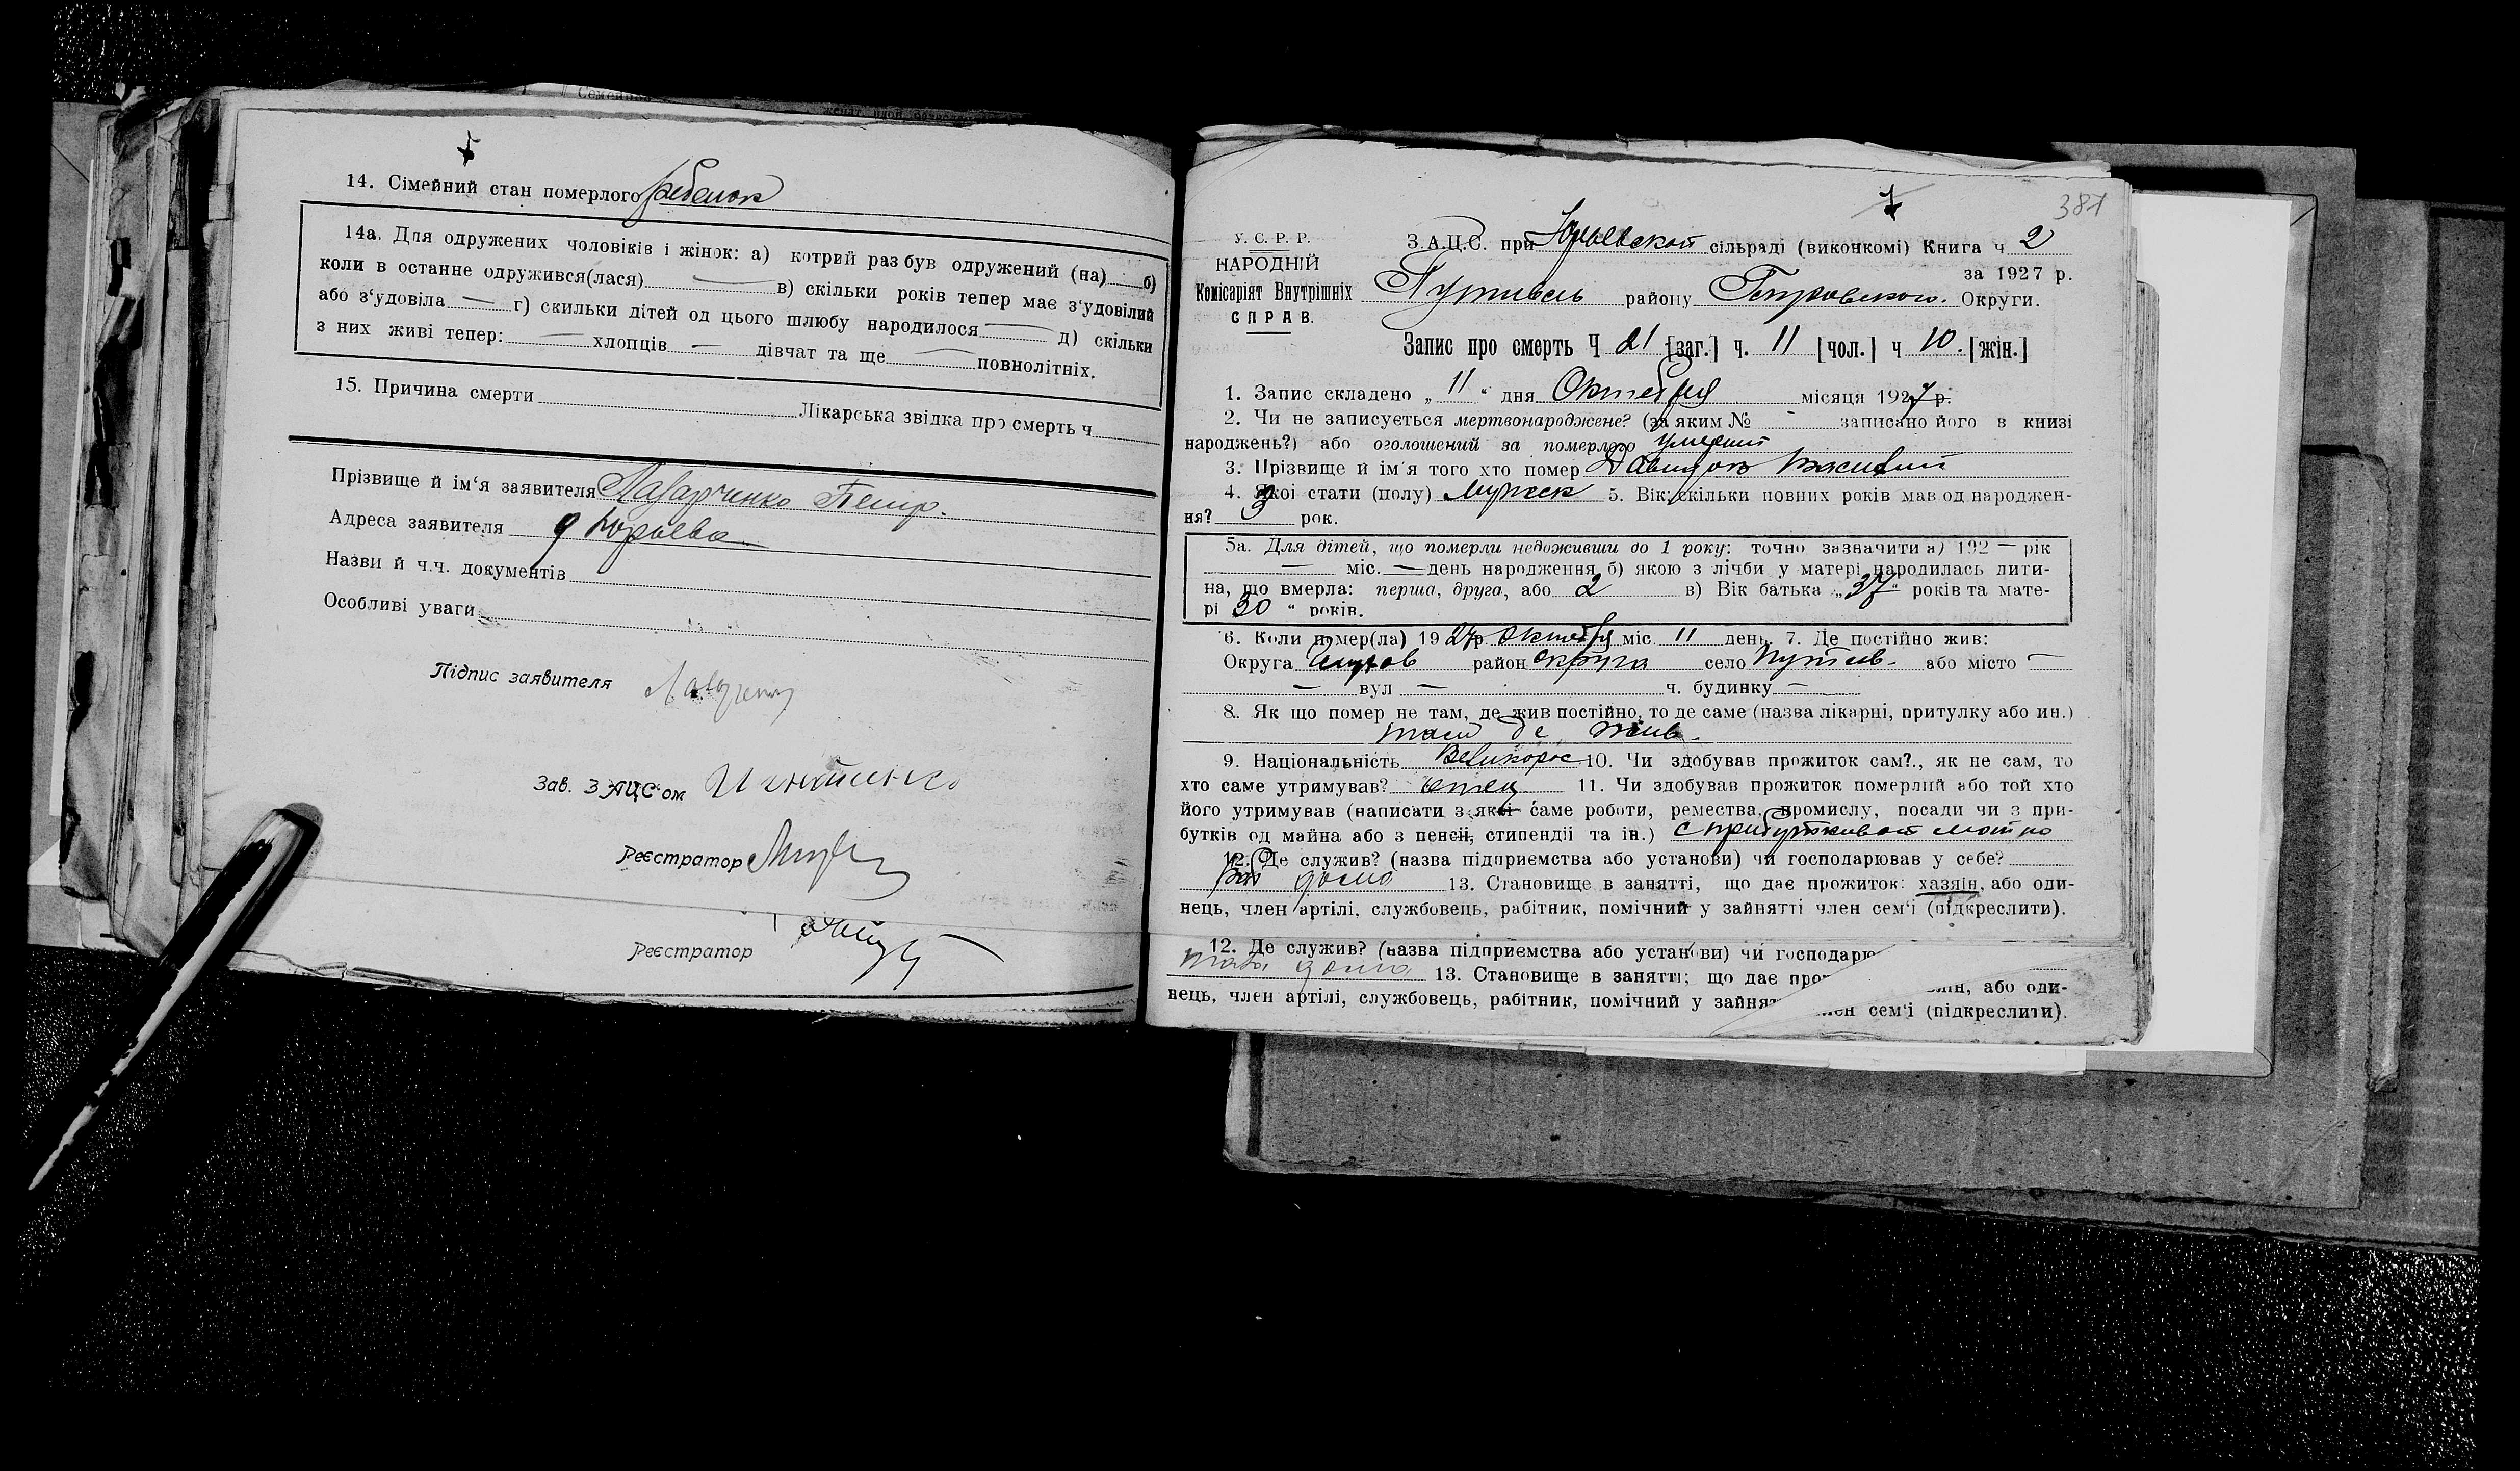 14. Сімейний стан померлого ребенок
14а. Для одружених чоловіків і жінок: а) котрий раз був одружений (на) — б)
коли в останне одружився(лася) — в) скільки років тепер має з'удовілий
або з'удовіла — г) скильки дітей од цього шлюбу народилося — д) скільки
з них живі тепер: — хлопців — дівчат та ще — повнолітніх.
15. Причина смерти Лікарська звідка про смерть ч
Прізвище й ім'я заявителя Лазарченко Петр.
Адреса заявителя д Юрьева
Назви й ч.ч. документів
Особливі уваги
Підпис заявителя
Зав. ЗАЦС'ом Игнатенко
Реєстратор
Реєстратор
381
У. С. Р. Р.
НАРОДНІЙ
Комісаріят Внутрішніх
СПРАВ.
З.А.Ц.С. при Юрьевской сільраді (виконкомі) Книга ч 2
за 1927 р.
Путивль району Глуховского Округи.
Запис про смерть Ч 21 [заг.] ч. 11 [чол.] ч 10. [жін.]
1. Запис складено „ 11 " дня Октября місяця 1927 р.
2. Чи не записується мертвонароджене? (за яким № - записано його в книзі
народжень?) або оголошений за померлого умерший
3. Прізвище й ім'я того хто помер Василий
4. Якоі стати (полу) Мужск 5. Вік: скільки повних років мав од народжен-
ня? 3 рок.
5а. Для дітей, що померли недоживши до 1 року: точно зазначити а) 192 — рік
— міс. — день народження б) якою з лічби у матері народилась дити-
на, що вмерла: перша, друга, або 2 в) Вік батька „ 37 " років та мате-
рі 30 " років.
6. Коли помер(ла) 1927р. Октября міс. 11 день. 7. Де постійно жив:
Округа Глухов район округа село Путивль або місто —
— вул — ч. будинку —
8. Як що помер не там, де жив постійно, то де саме (назва лікарні, притулку або ин.)
там де жив.
9. Національність Великорос 10. Чи здобував прожиток сам?., як не сам, то
хто саме утримував? отец 11. Чи здобував прожиток померлий або той хто
його утримував (написати з якої саме роботи, ремества, промислу, посади чи з при-
бутків од майна або з пенсії, стипендіі та ін.)
12. Де служив? (назва підприємства або установи) чи господарював у себе?
дома 13. Становище в занятті, що дає прожиток: хазяїн, або оди-
нець, член артілі, службовець, рабітник, помічний у зайнятті член сем'і (підкреслити).
12. Де служив? (назва підприємства або установи) чи господарю
дома 13. Становище в занятті; що дає про їн, або оди-
нець, член артілі, службовець, рабітник, помічний у зайнят лен сем'і (підкреслити).